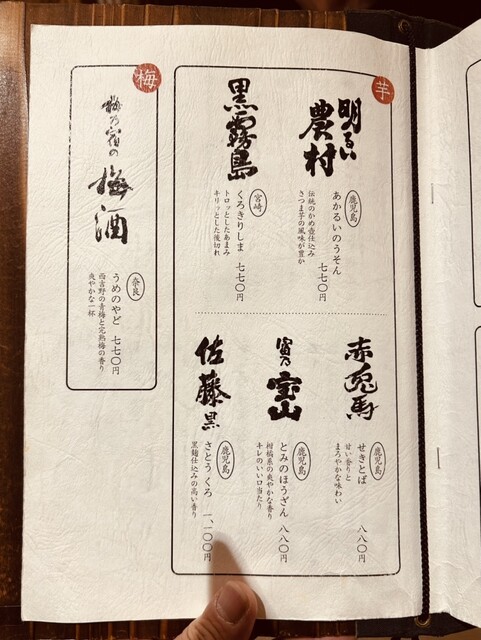 芋
明るい
農村
鹿児島
あかるいのうそん
七七〇円
伝統のかめ壺仕込み
さつま芋の風味が豊か
黒霧島
宮崎
くろきりしま
七七〇円
トロッとしたあまみ
キリッとした後切れ
赤兎馬
鹿児島
せきとば
八八〇円
甘い香りと
まろやかな味わい
富乃
宝山
鹿児島
とみのほうざん
八八〇円
柑橘系の爽やかな香り
キレのいい口当たり
佐藤 黒
鹿児島
さとう くろ
一、一〇〇円
黒麹仕込みの高い香り
梅
梅乃宿の
梅酒
奈良
うめのやど
七七〇円
西吉野の青梅と完熟梅の香り
爽やかな一杯